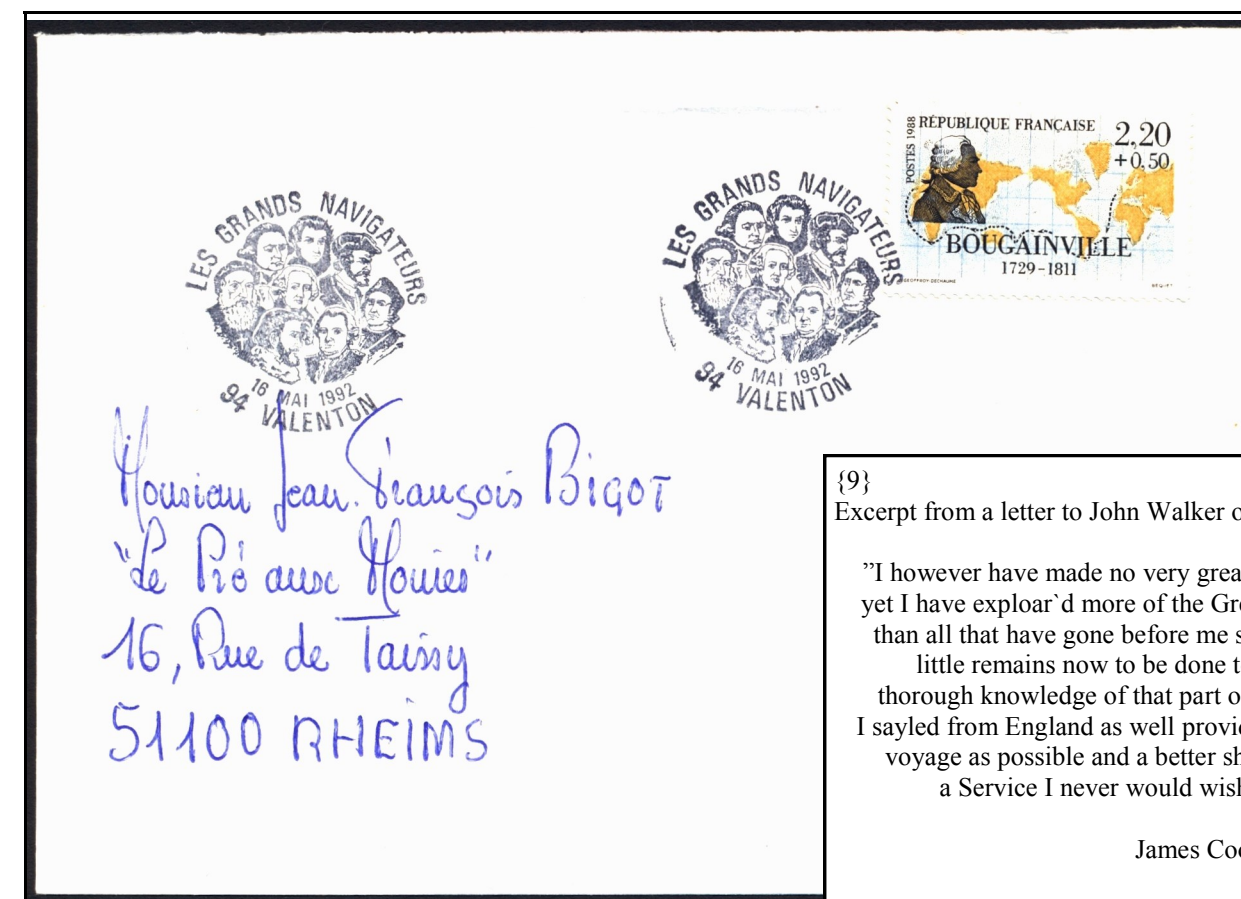 LES GRANDS NAVIGATEURS
16 MAI 1992
94 VALENTON
LES GRANDS NAVIGATEURS
16 MAI 1992
94 VALENTON
POSTES 1988
RÉPUBLIQUE FRANÇAISE
2,20
+0,50
BOUGAINVILLE
1729-1811
Monsieur Jean-François BIGOT
"Le Pré aux Moines"
16, Rue de Taissy
51100 RHEIMS
{9}
Excerpt from a letter to John Walker o
”I however have made no very grea
yet I have exploar`d more of the Gre
than all that have gone before me s
little remains now to be done t
thorough knowledge of that part o
I sayled from England as well provid
voyage as possible and a better sh
a Service I never would wish
James Coo